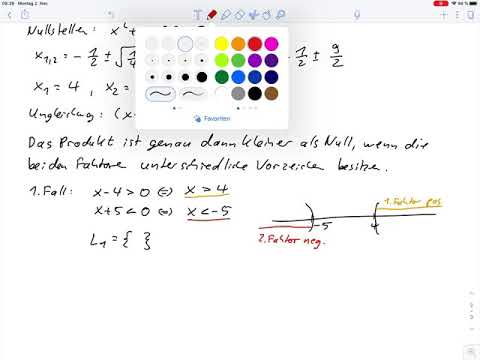 08:39 Montag 2. Nov.
Nullstellen: x²+
x₁,₂ = - 1/2 ± √1/4 · 1/2 ± 9/2
x₁ = 4 , x₂ =
Favoriten
Ungleichung: (x-
Das Produkt ist genau dann kleiner als Null, wenn die
beiden Faktoren unterschiedliche Vorzeichen besitzen.
1. Fall: x-4 > 0 ⇔ x > 4
x+5 < 0 ⇔ x < -5
1. Faktor pos.
-5 4
L₁ = { }
2. Faktor neg.